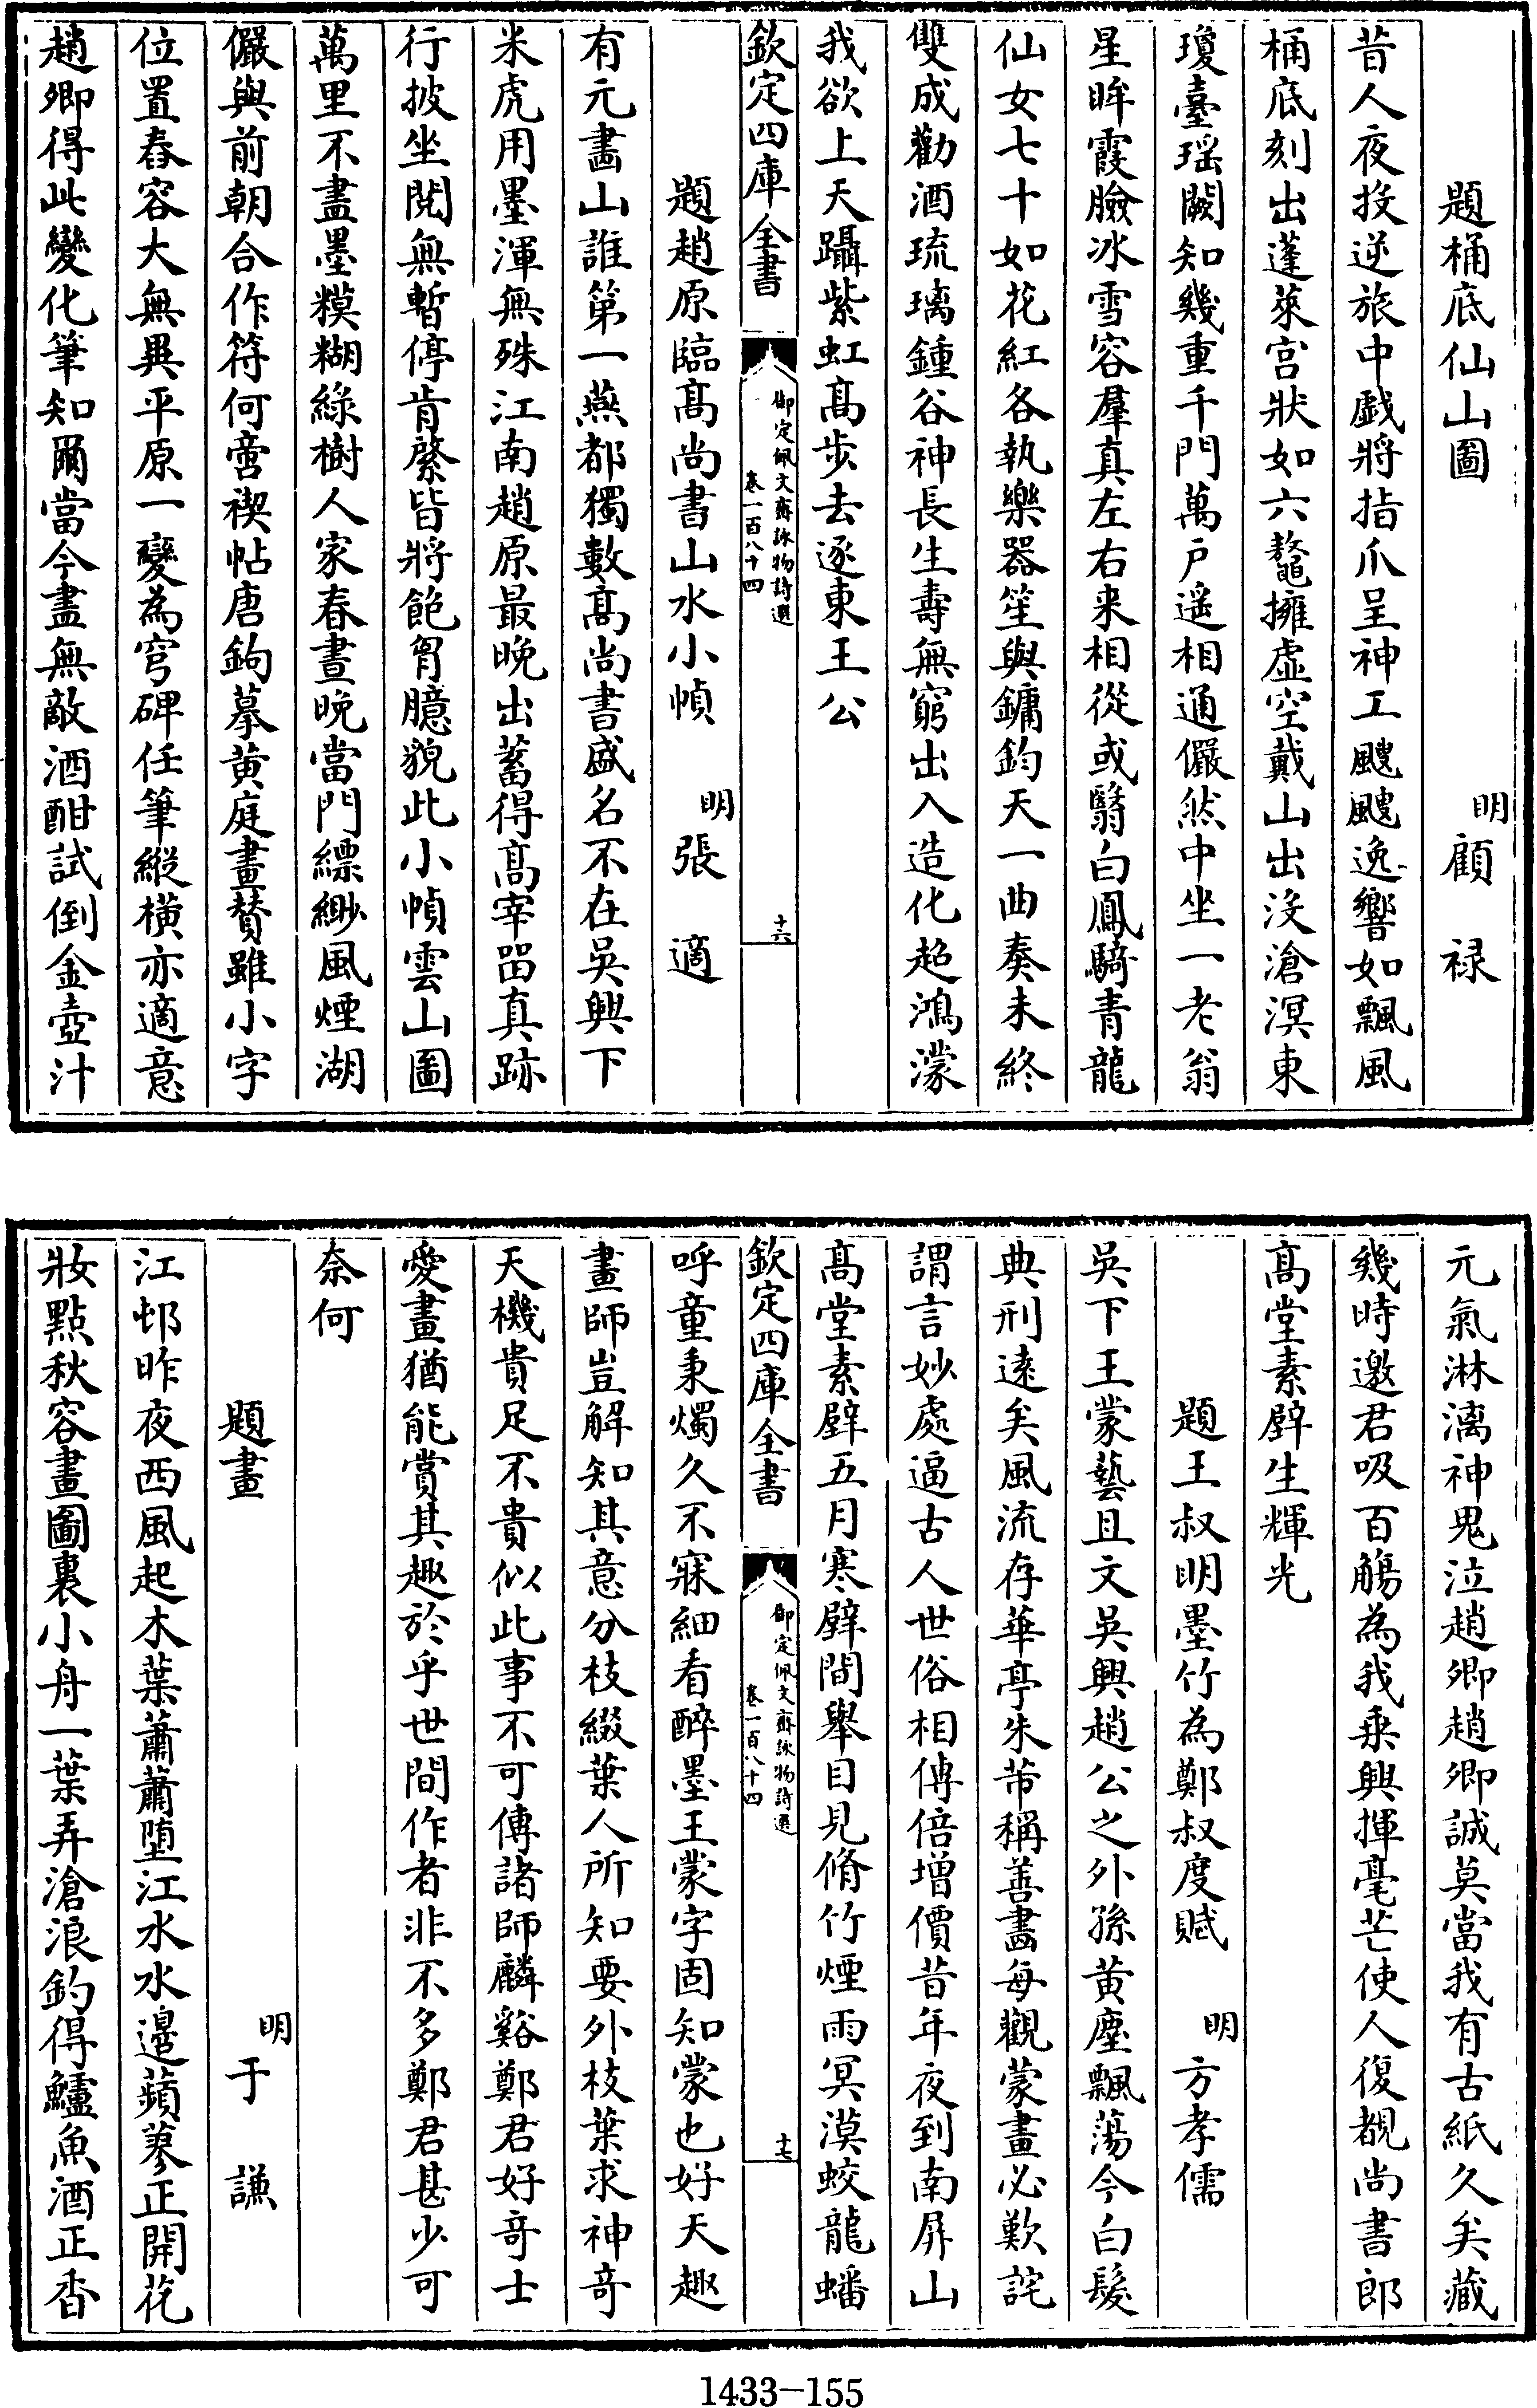 題桶底仙山圖　明顧祿
昔人夜投逆旅中戯將指爪呈神工颼颼逸響如飄風
桶底刻出蓬萊宫狀如六鼇擁虚空戴山出沒滄溟東
瓊臺瑶闕知幾重千門萬户遥相通儼然中坐一老翁
星眸霞臉冰雪容羣真左右来相從或翳白鳳騎青龍
仙女七十如花紅各執樂器笙與鏞鈞天一曲奏未終
雙成勸酒琉璃鍾谷神長生壽無窮出入造化超鴻濛
我欲上天躡紫虹髙步去逐東王公
欽定四庫全書　御定佩文齋詠物詩選　卷一百八十四　十六
題趙原臨髙尚書山水小幀　明張適
有元畵山誰第一燕都獨數髙尚書盛名不在吳興下
米虎用墨渾無殊江南趙原最晚出蓄得髙宰畱真跡
行披坐閲無暫停肯綮皆將飽胷臆貌此小幀雲山圖
萬里不盡墨糢糊綠樹人家春晝晚當門縹緲風煙湖
儼與前朝合作符何啻禊帖唐鉤摹黄庭畫賛雖小字
位置舂容大無異平原一變為穹碑任筆縱横亦適意
趙卿得此變化筆知爾當今盡無敵酒酣試倒金壺汁
元氣淋漓神鬼泣趙卿趙卿誠莫當我有古紙久矣藏
幾時邀君吸百觴為我乗興揮毫芒使人復覩尚書郎
髙堂素壁生輝光
題王叔明墨竹為鄭叔度賦　明方孝儒
吳下王蒙藝且文吳興趙公之外孫黄塵飄蕩今白髮
典刑逺矣風流存華亭朱芾稱善畵每觀蒙畫必歎詫
謂言妙處逼古人世俗相傳倍增價昔年夜到南屏山
髙堂素壁五月寒壁間舉目見脩竹煙雨冥漠蛟龍蟠
欽定四庫全書　御定佩文齋詠物詩選　卷一百八十四　十七
呼童秉燭久不寐細看醉墨王蒙字固知蒙也好天趣
畫師豈解知其意分枝綴葉人所知要外枝葉求神竒
天機貴足不貴似此事不可傳諸師麟谿鄭君好竒士
愛畫猶能賞其趣於乎世間作者非不多鄭君甚少可
奈何
題畫　明于謙
江邨昨夜西風起木葉蕭蕭墮江水水邉蘋蓼正開花
妝點秋容畫圖裏小舟一葉弄滄浪釣得鱸魚酒正香
1433-155